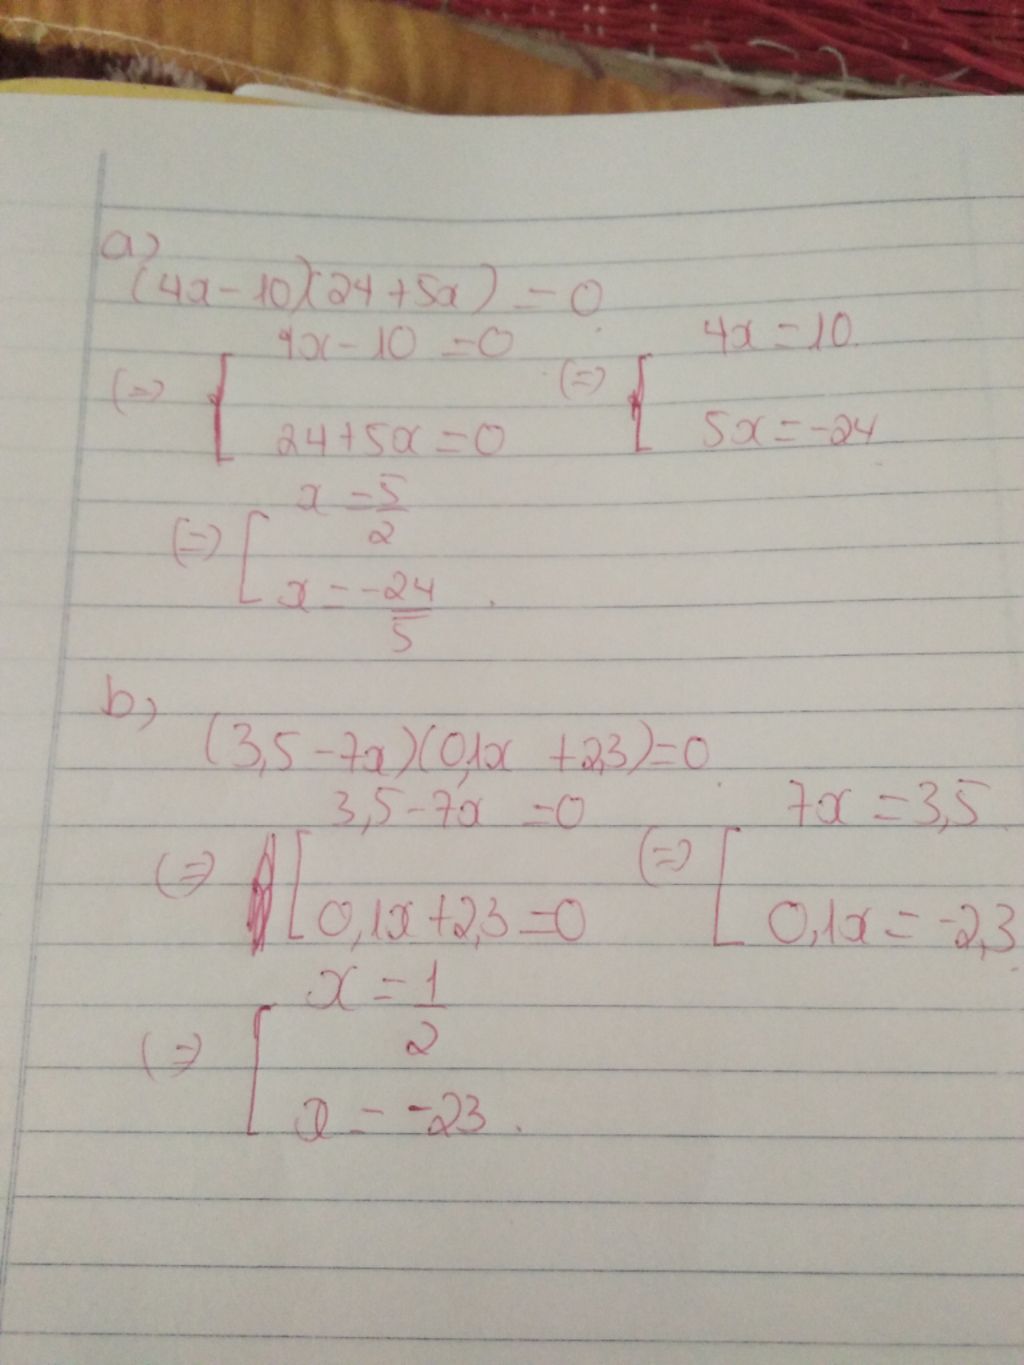 a)
(4x-10)(24+5x) = 0
4x-10 =0 4x=10
(=) [ (=) [
24+5x=0 5x=-24
x = 5/2
(=) [
x = -24/5
b)
(3,5-7x)(0,1x +2,3)=0
3,5-7x =0 7x =3,5
(=) [ (=) [
0,1x+2,3=0 0,1x = -2,3
x = 1/2
(=) [
x = -23.